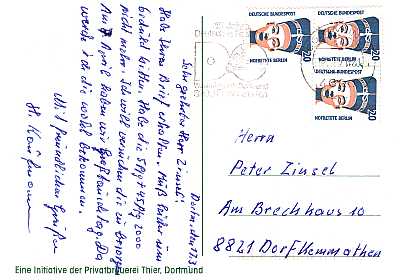 Dortm., den 17.3.
Sehr geehrter Herr Zinsel!
Habe Ihren Brief erhalten. Muß leider um
Geduld bitten. Habe die
nicht mehr. Ich will versuchen die zu besorgen
Am 7. April haben wir Großtauschtag. Da
werde ich die wohl bekommen.
Mit freundlichen Grüßen
H. Kaufmann
DEUTSCHE BUNDESPOST
NOFRETETE BERLIN
20
DEUTSCHE BUNDESPOST
NOFRETETE BERLIN
20
DEUTSCHE BUNDESPOST
NOFRETETE BERLIN
20
Herrn
Peter Zinsel
Am Brechhaus 10
8821 Dorfkemmathen
Eine Initiative der Privatbrauerei Thier, Dortmund